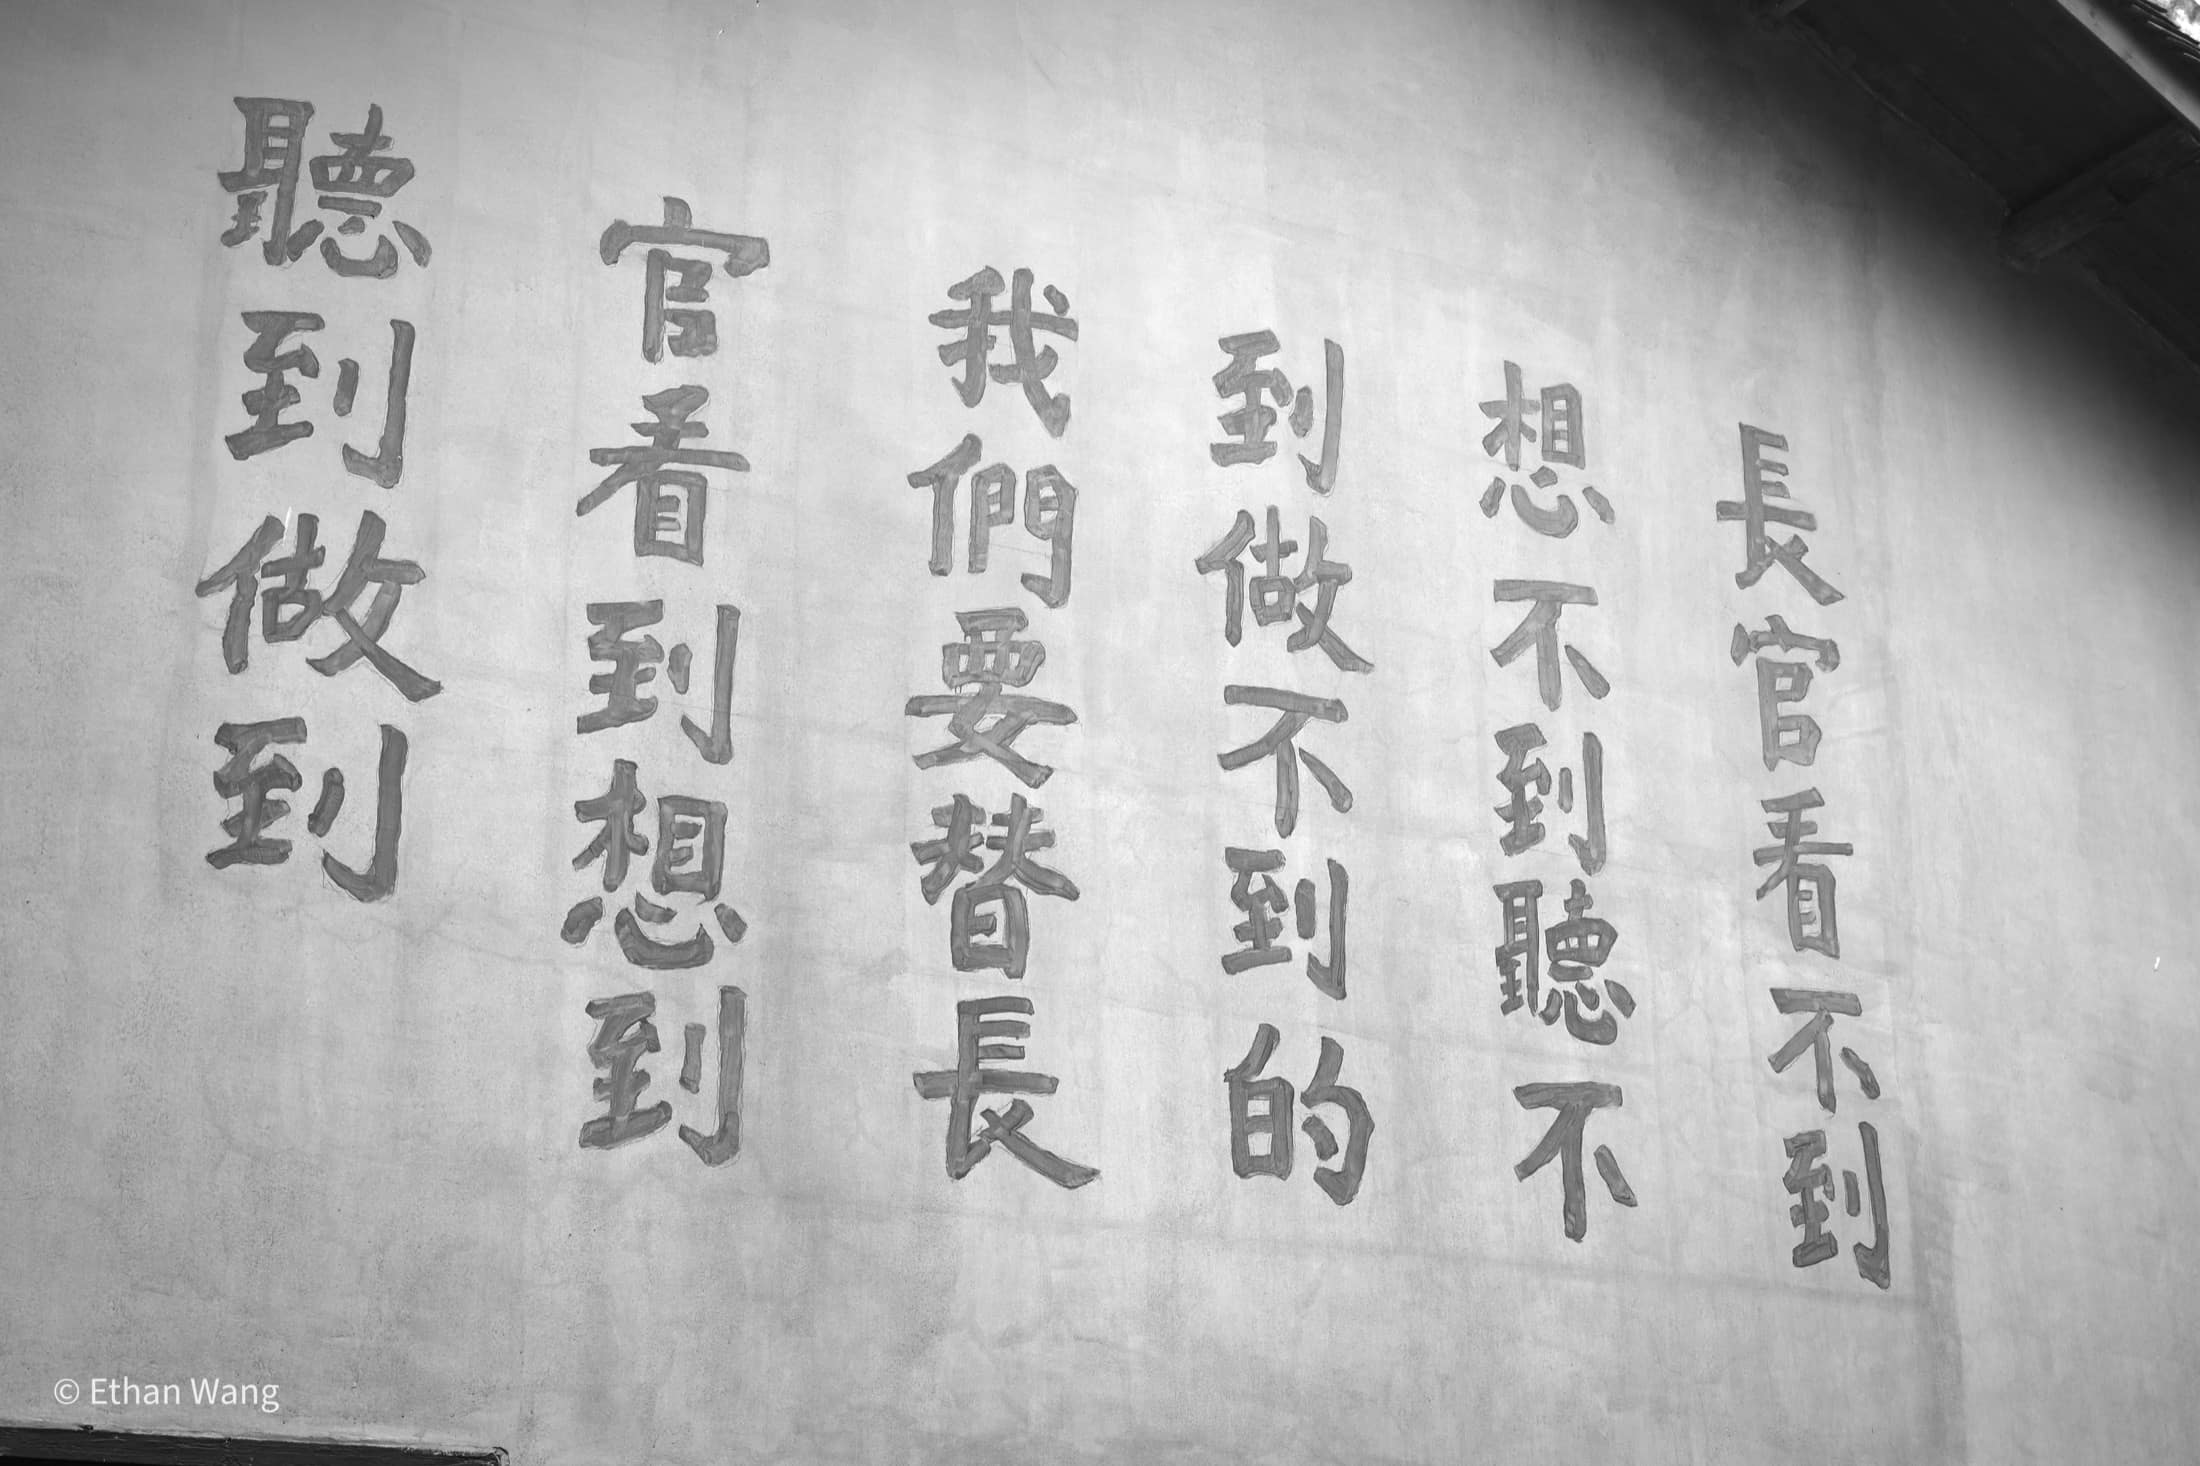 長官看不到
想不到聽不
到做不到的
我們要替長
官看到想到
聽到做到
© Ethan Wang